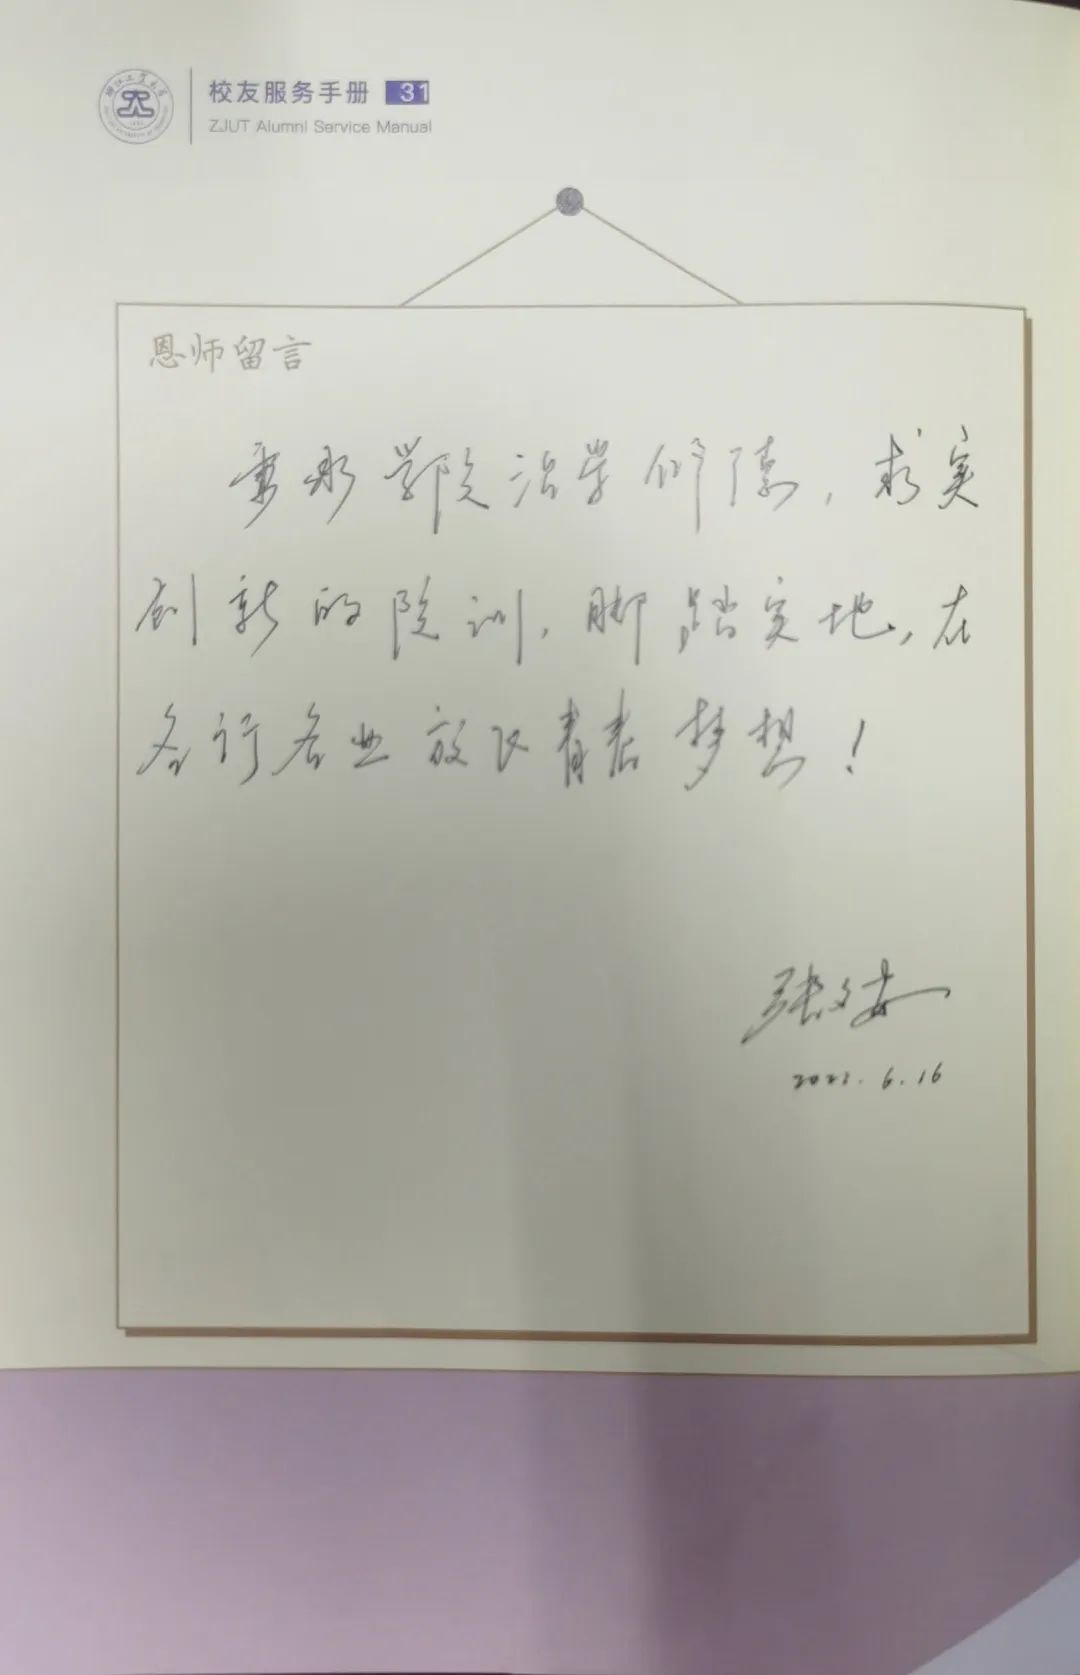 校友服务手册 31
ZJUT Alumni Service Manual
恩师留言
秉承学院治学修德，求实
创新的院训，脚踏实地，在
各行各业放飞青春梦想！
张文安
6.16